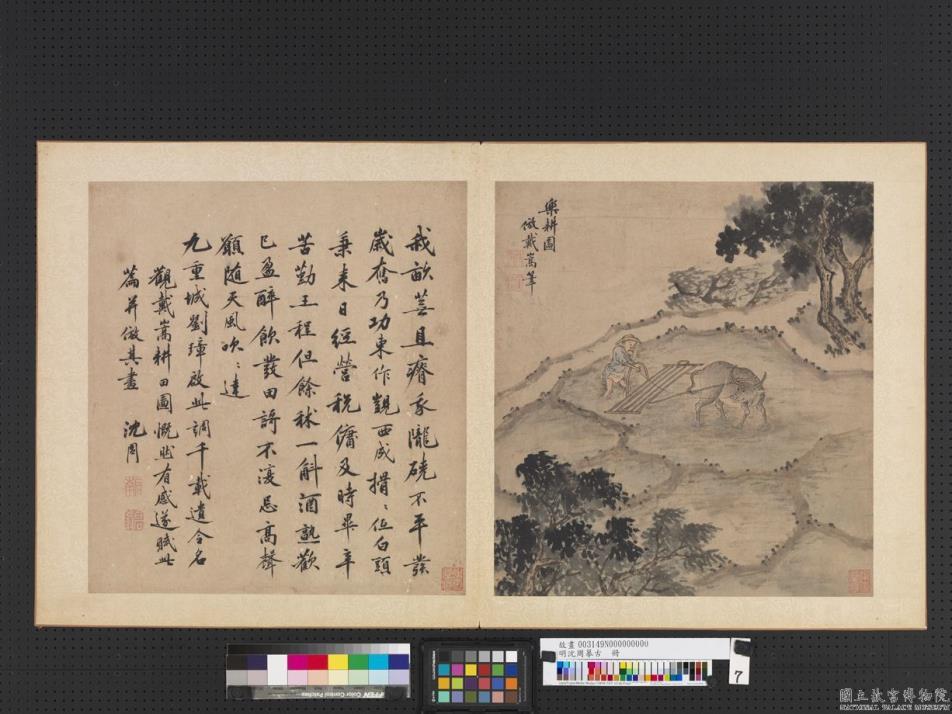 樂耕圖
倣戴嵩筆
畝且瘠隴磽不平發
歲畬乃功東作觀西成揹揹白頭
秉耒日經營稅傭及時畢辛
苦勤王程但餘秫一斛酒熟歡
已盈醉飲發田謌不復忌高聲
願隨天風吹吹達
九重城劉璋啟此調千載遺令名
觀戴嵩耕田圖慨然有感遂賦此
篇并倣其畫 沈周
故畫 003149N000000000
明沈周摹古 冊
7
Color Control Patches
國立故宮博物院
NATIONAL PALACE MUSEUM